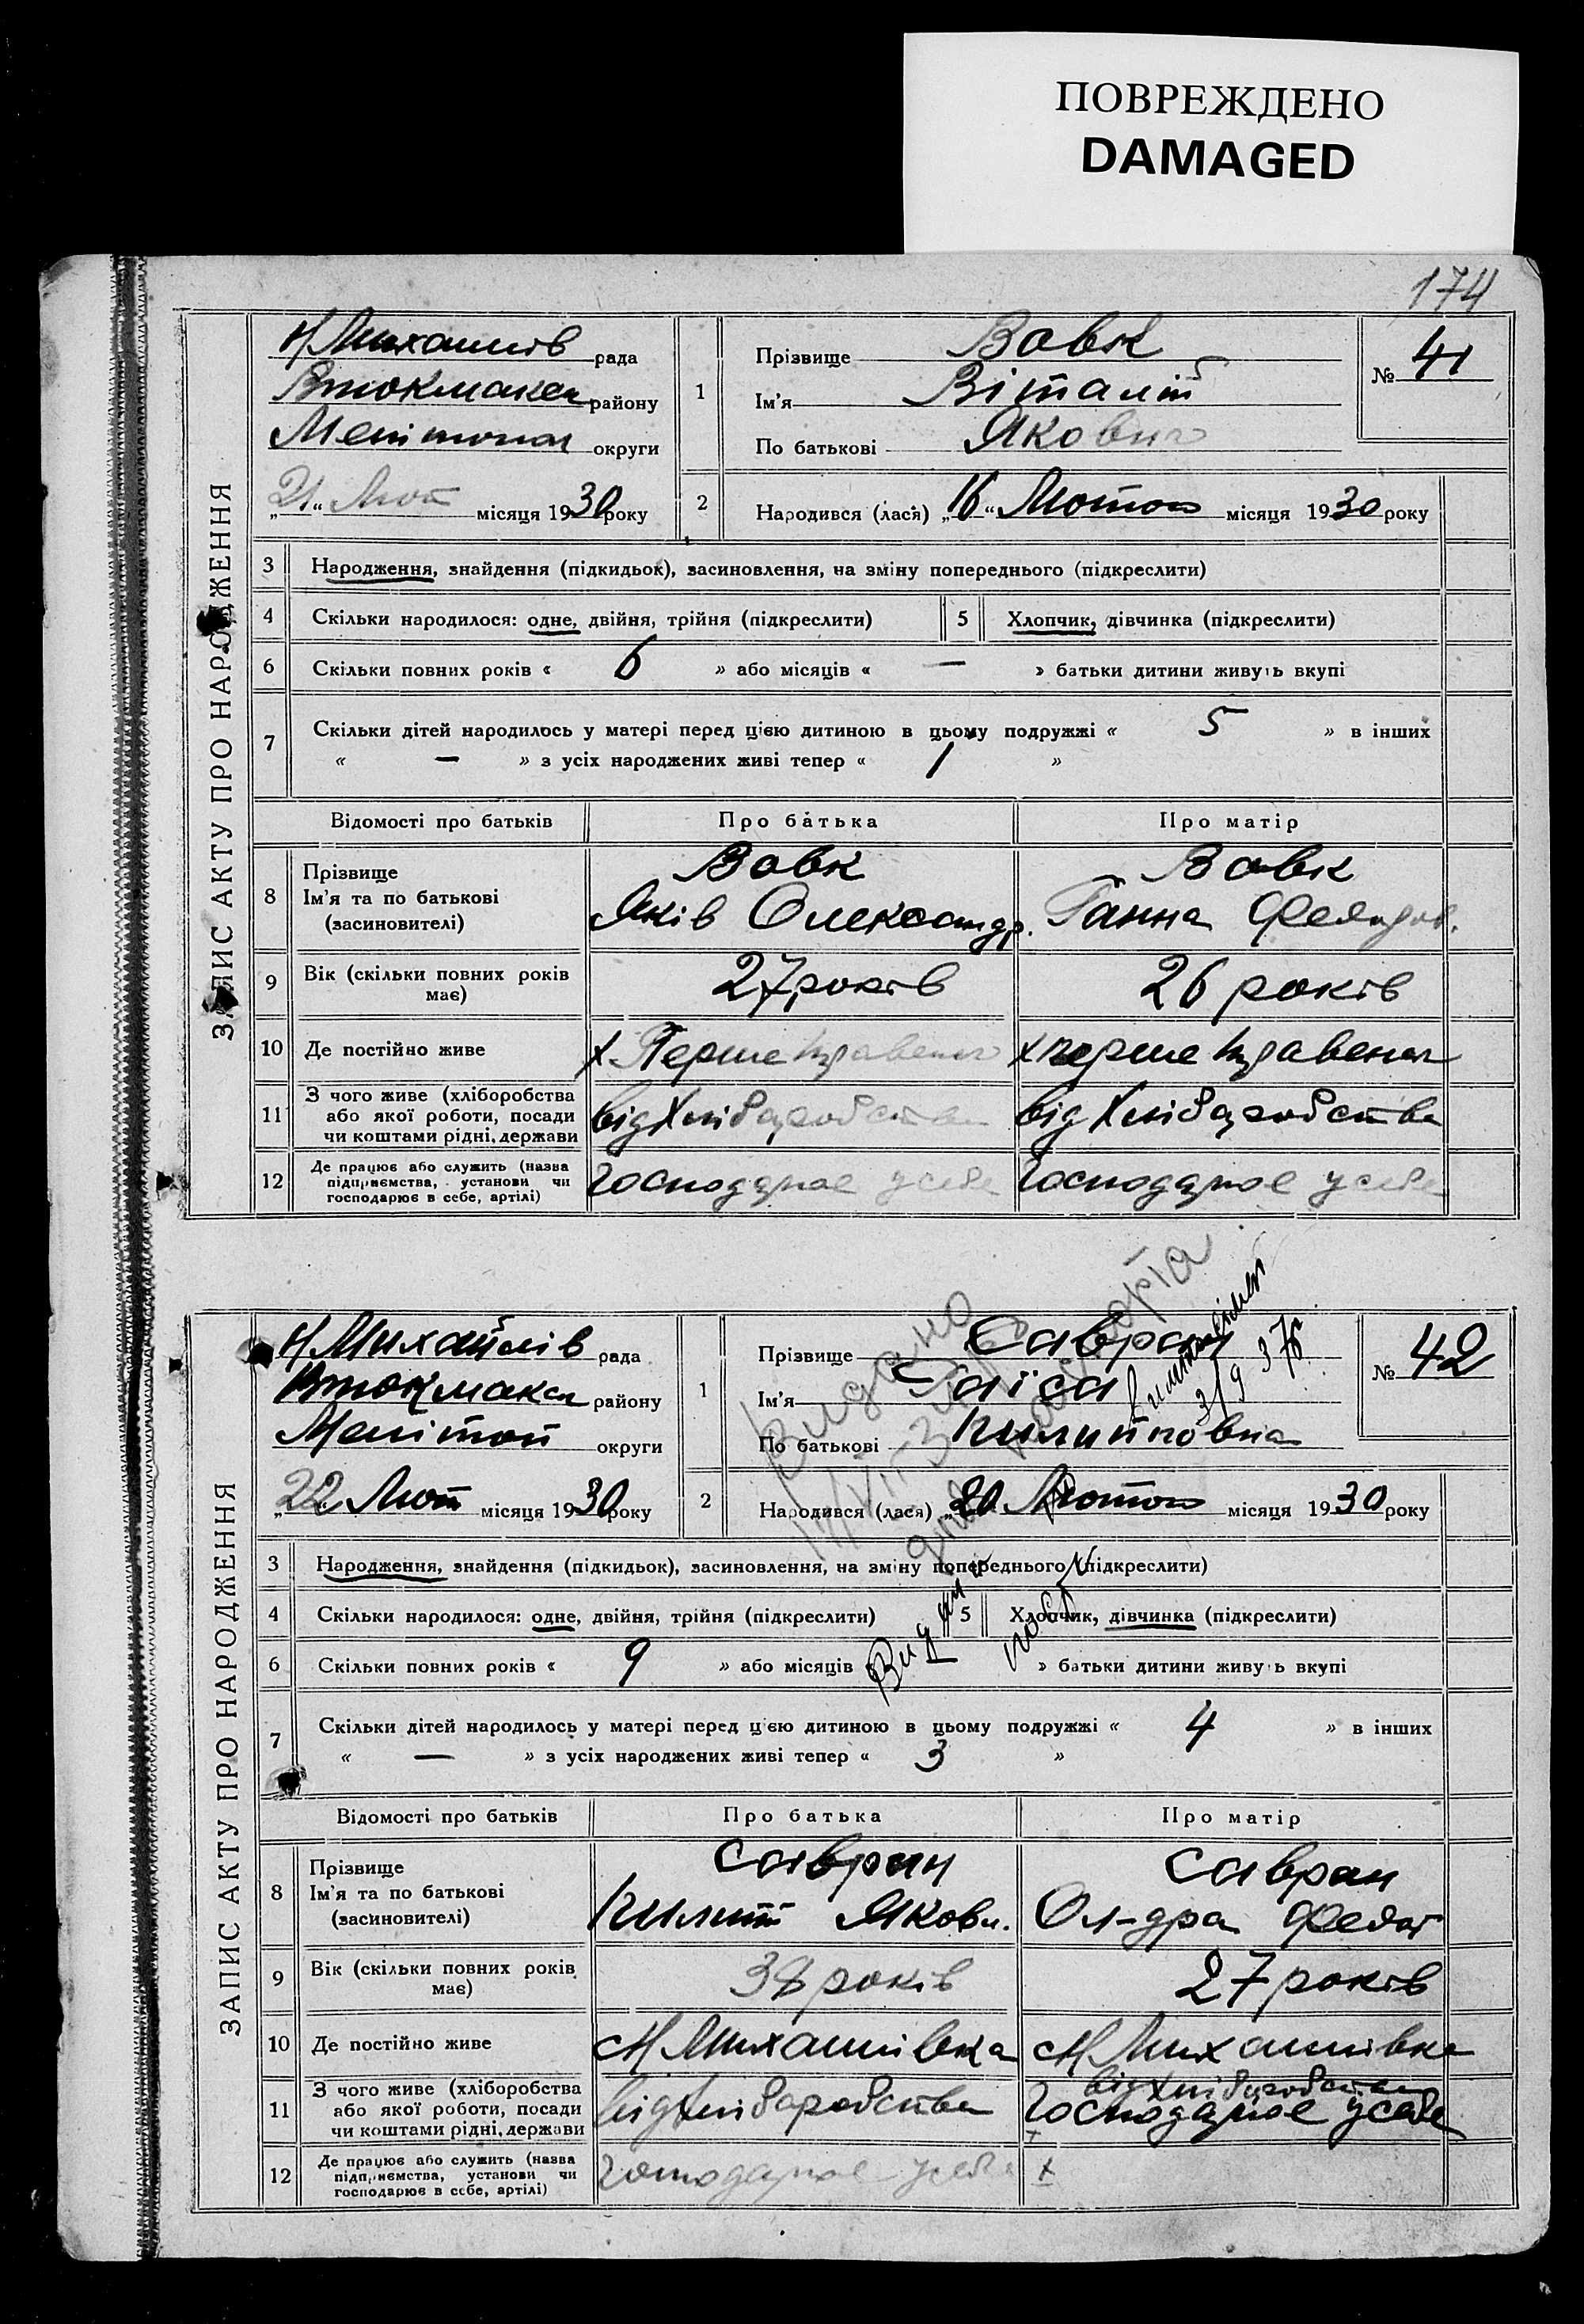 ПОВРЕЖДЕНО
DAMAGED
174
ЗАПИС АКТУ ПРО НАРОДЖЕННЯ
Н Михайлів рада
Втокмакск району
Меліт округи
„21“ Лют місяця 1930 року
1 Прізвище Вовк
Ім'я Віталій
По батькові Якович
№ 41
2 Народився (лася) „16“ Лютого місяця 1930 року
3 Народження, знайдення (підкидьок), засиновлення, на зміну попереднього (підкреслити)
4 Скільки народилося: одне, двійня, трійня (підкреслити) 5 Хлопчик, дівчинка (підкреслити)
6 Скільки повних років « 6 » або місяців « — » батьки дитини живуть вкупі
7 Скільки дітей народилось у матері перед цією дитиною в цьому подружжі « 5 » в інших
« — » з усіх народжених живі тепер « 1 »
Відомості про батьків Про батька Про матір
8 Прізвище Вовк Вовк
Ім'я та по батькові Яків Олександр. Ганна
(засиновителі)
9 Вік (скільки повних років має) 27 років 26 років
10 Де постійно живе х. Перше х перше
11 З чого живе (хліборобства
або якої роботи, посади від Хліборобства від Хліборобства
чи коштами рідні, держави
12 Де працює або служить (назва
підприємства, установи чи Господарює у себе Господарює у себе
господарює в себе, артілі)
ЗАПИС АКТУ ПРО НАРОДЖЕННЯ
Н Михайлів рада
Втокмакск району
Мелітоп округи
„22“ Лют місяця 1930 року
1 Прізвище Савран
Ім'я Раїса
По батькові Килиптовна
№ 42
2 Народився (лася) „20“ Лютого місяця 1930 року
Видано
для паспорта
319 37р.
3 Народження, знайдення (підкидьок), засиновлення, на зміну попереднього (підкреслити)
4 Скільки народилося: одне, двійня, трійня (підкреслити) 5 Хлопчик, дівчинка (підкреслити)
6 Скільки повних років « 9 » або місяців « — » батьки дитини живуть вкупі
7 Скільки дітей народилось у матері перед цією дитиною в цьому подружжі « 4 » в інших
« — » з усіх народжених живі тепер « 3 »
Відомості про батьків Про батька Про матір
8 Прізвище Савран Савран
Ім'я та по батькові Килипт Якови. Ол-дра Федот
(засиновителі)
9 Вік (скільки повних років має) 38 років 27 років
10 Де постійно живе с Н Михайлівка с Н Михайлівка
11 З чого живе (хліборобства від Хліборобства
або якої роботи, посади від Хліборобства Господарює у себе
чи коштами рідні, держави
12 Де працює або служить (назва
підприємства, установи чи Господарює у себе х
господарює в себе, артілі)